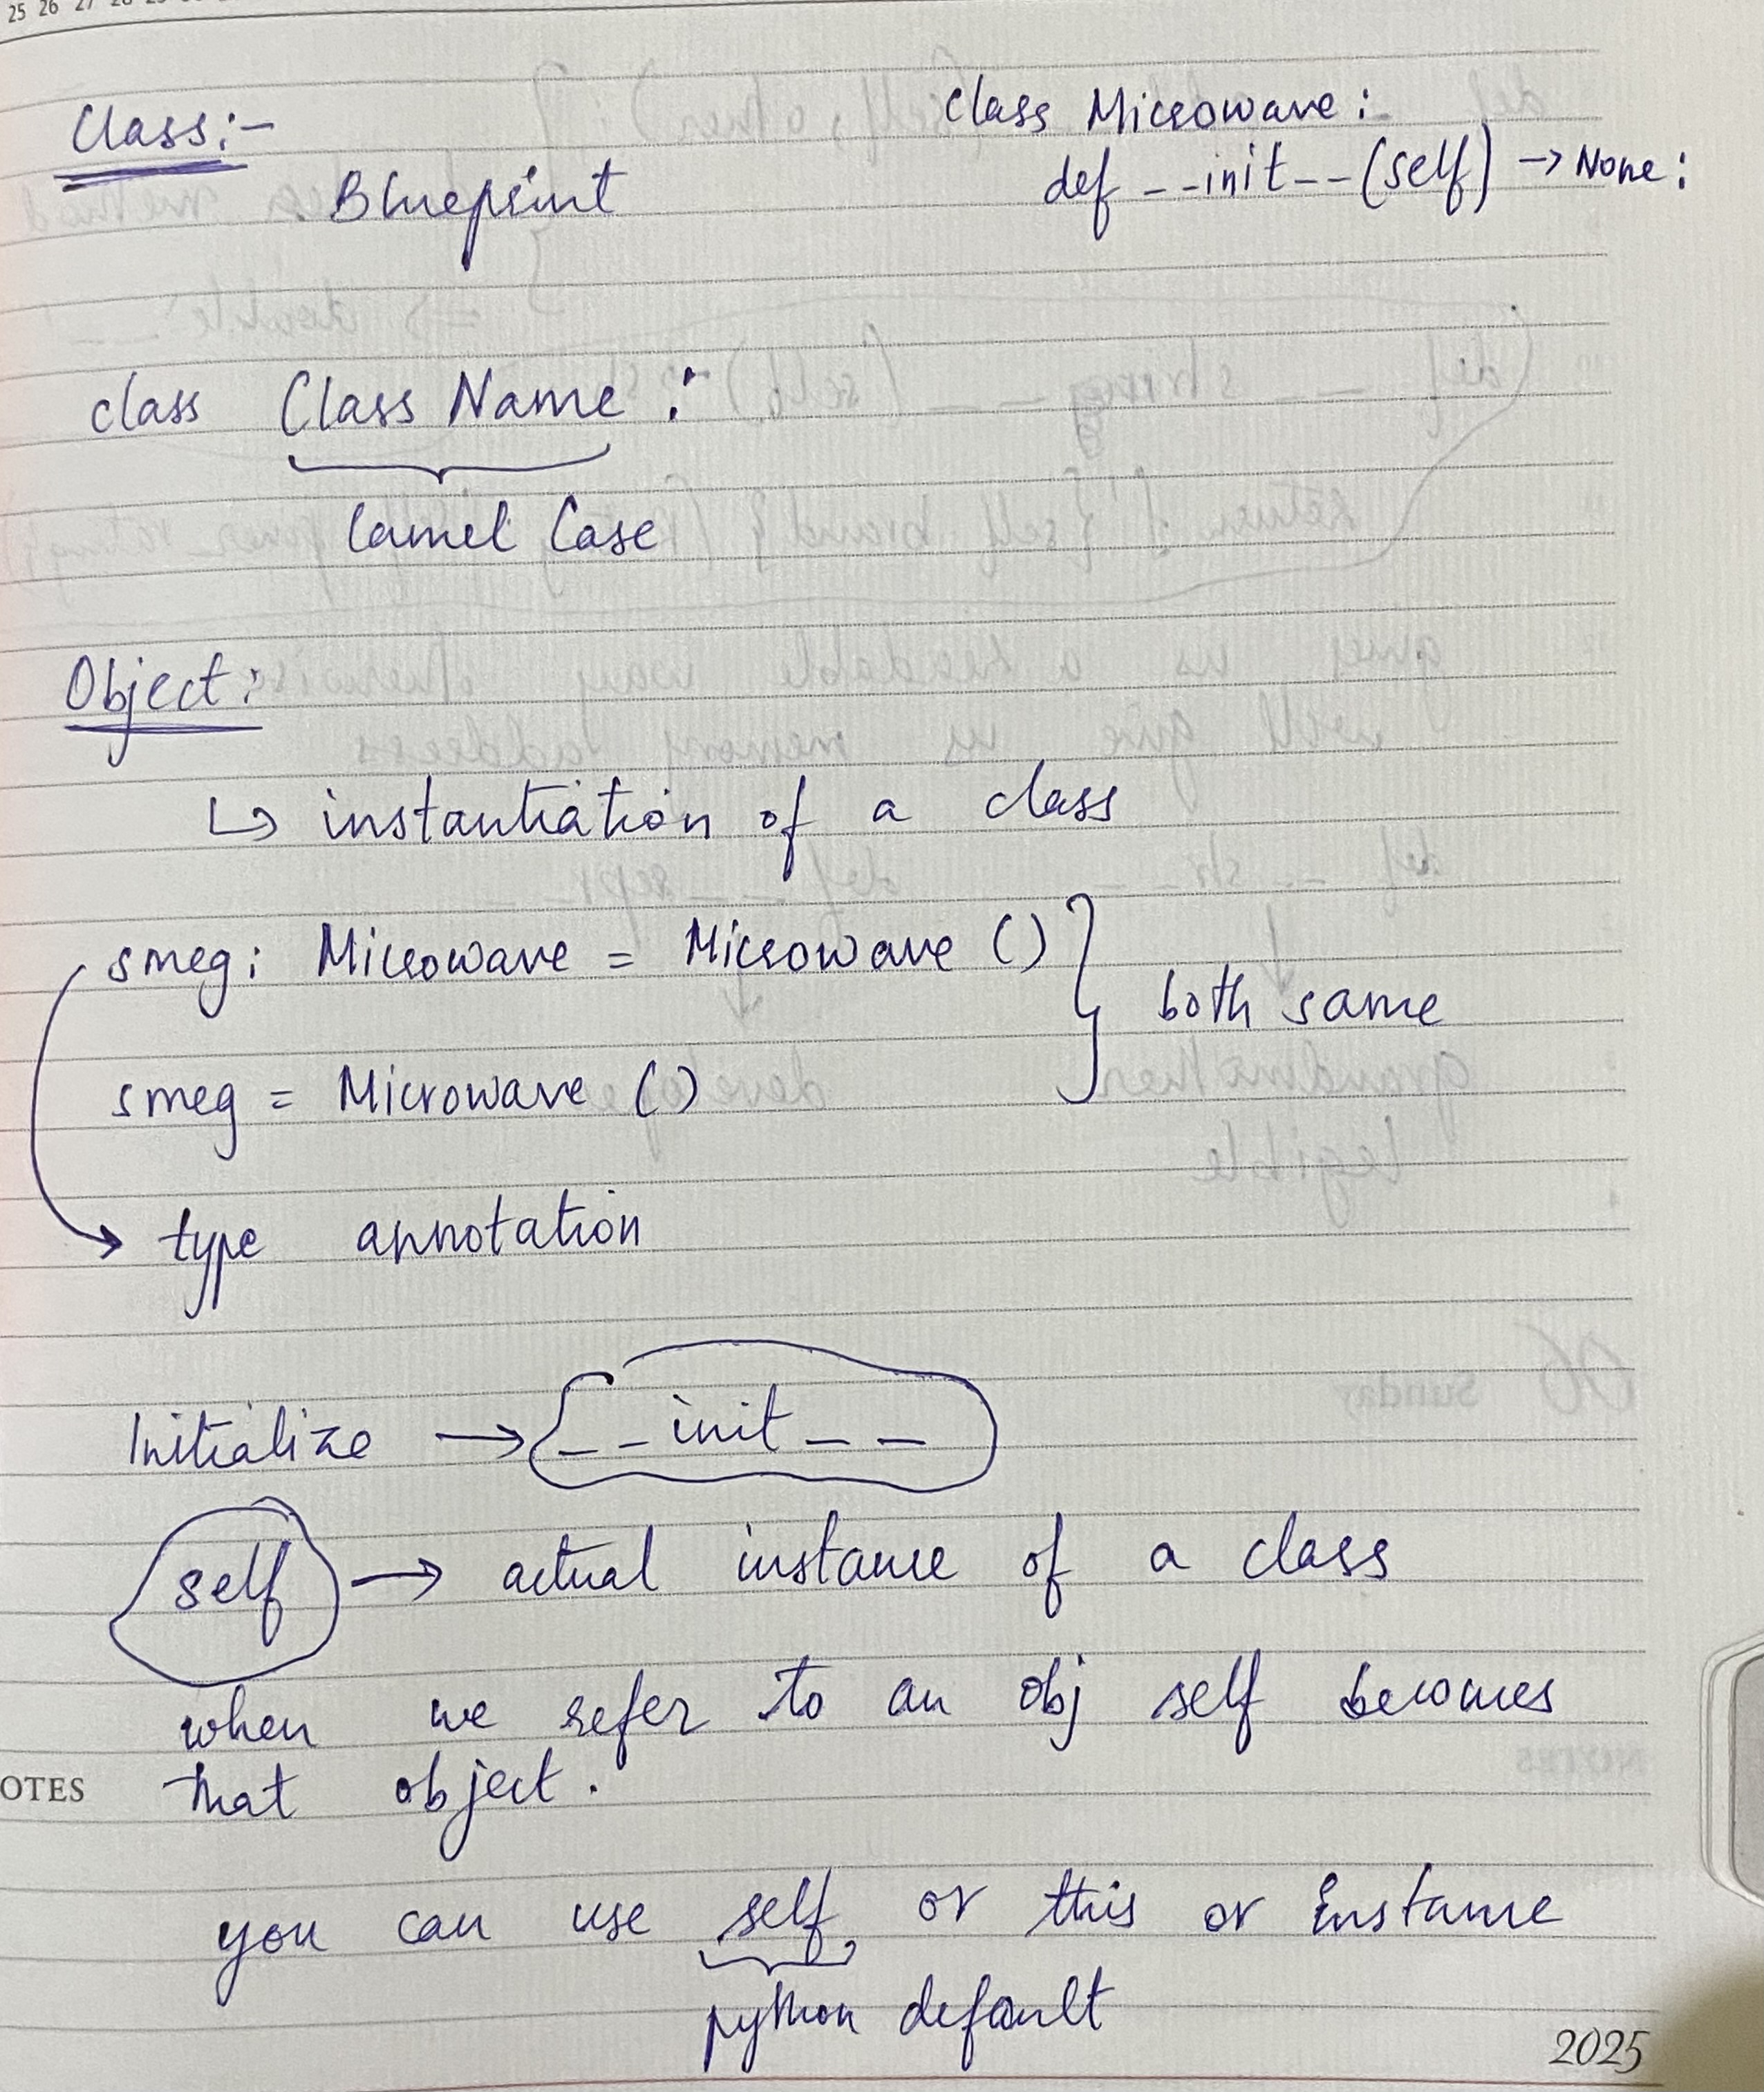 25 26 27 28
Class:-
Blueprint
Class Microwave:-
def __init__(self) → None:
class Class Name:
Camel Case
Object:
↳ instantiation of a class
smeg: Microwave = Microwave ()
smeg = Microwave ()
both same
→ type annotation
Initialize → __init__
self → actual instance of a class
when we refer to an obj self becomes
OTES that object.
you can use self or this or instance
python default
2025